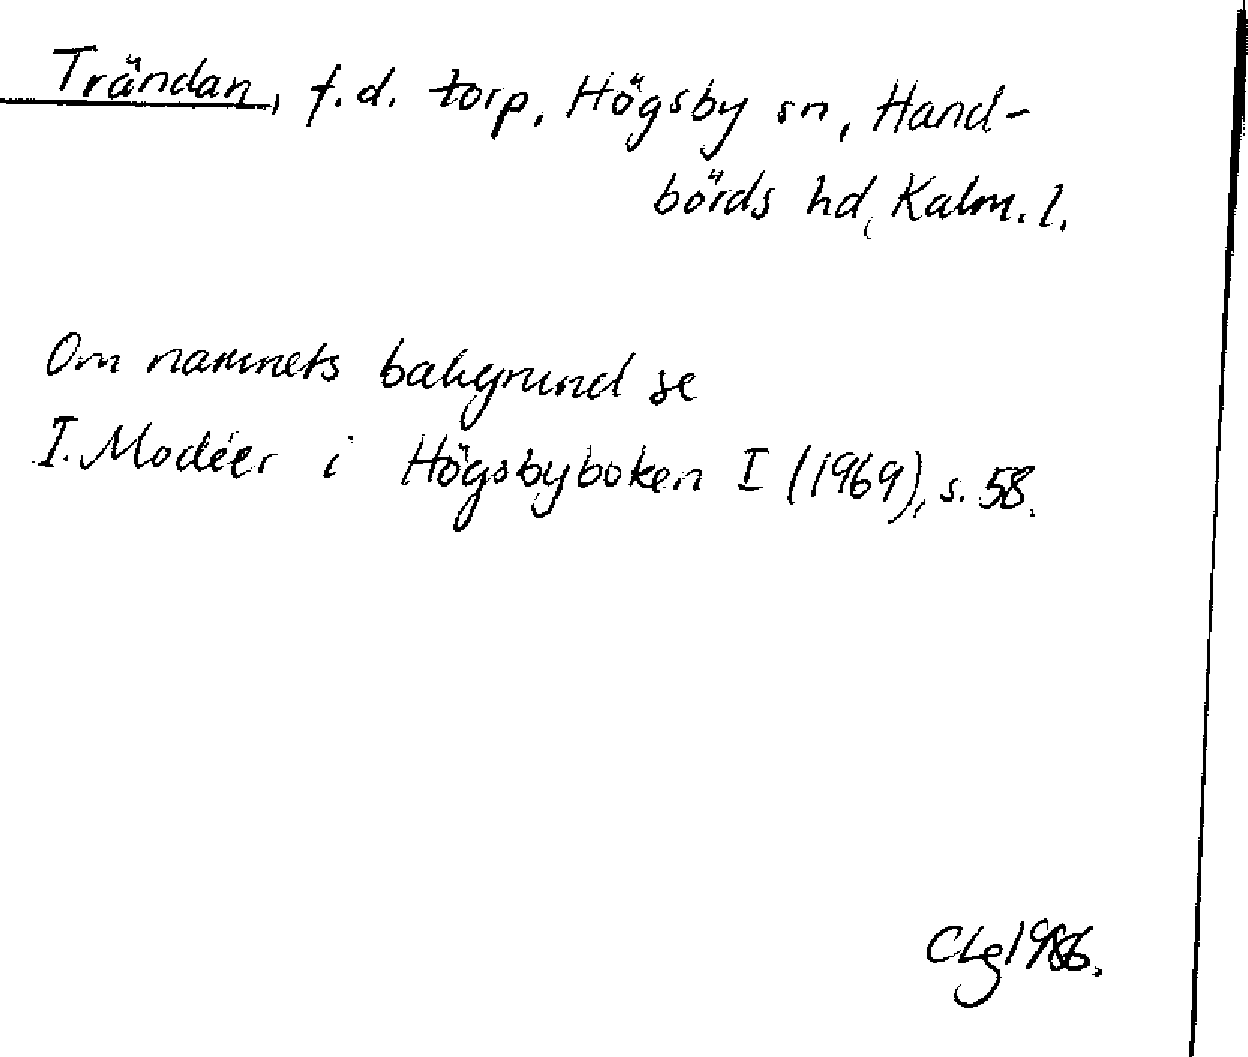 Trändan, f.d. torp, Högsby sn, Hand-
börds hd, Kalm. l.
Om namnets bakgrund se
I. Modéer i Högsbyboken I (1969), s. 58.
CLg 1986.